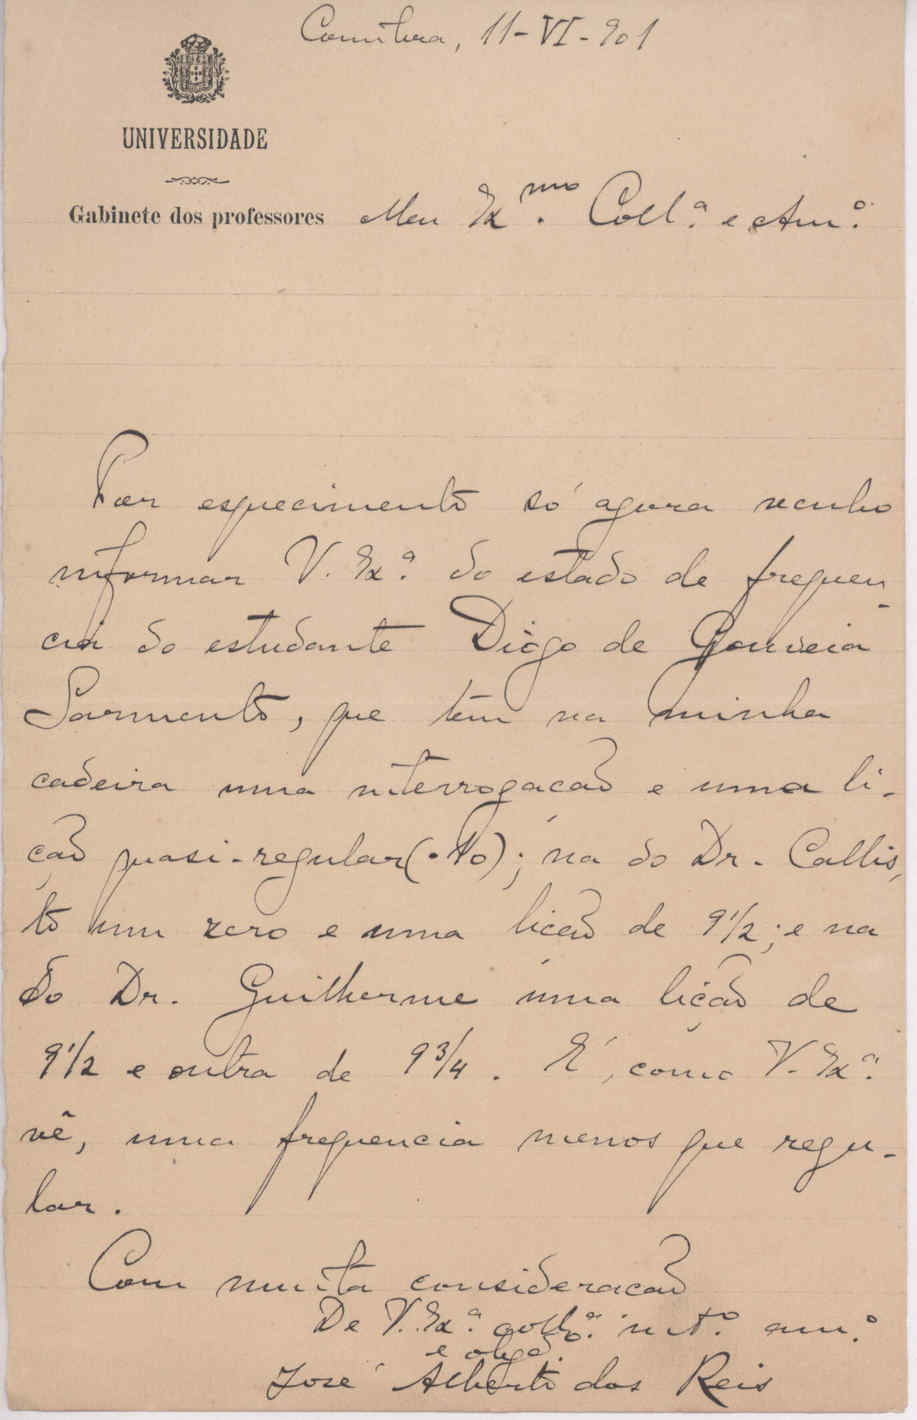 Coimbra, 11-VI-901
UNIVERSIDADE
Gabinete dos professores
Meu Ex.mo Coll.ª e Am.º
Por esquecimento só agora venho
informar V. Ex.ª do estado de frequen-
cia do estudante Diogo de Gouveia
Sarmento, que tem na minha
cadeira uma interrogacão e uma li-
ção quasi-regular (10); na do Dr. Callis,
to um zero e uma licão de 9 1/2; e na
do Dr. Guilherme uma lição de
9 1/2 e outra de 9 3/4. É, como V. Ex.ª
vê, uma frequencia menos que regu-
lar.
Com muita consideracão
De V. Ex.ª coll.ª m.to am.º
e obgdº.
José Alberto dos Reis